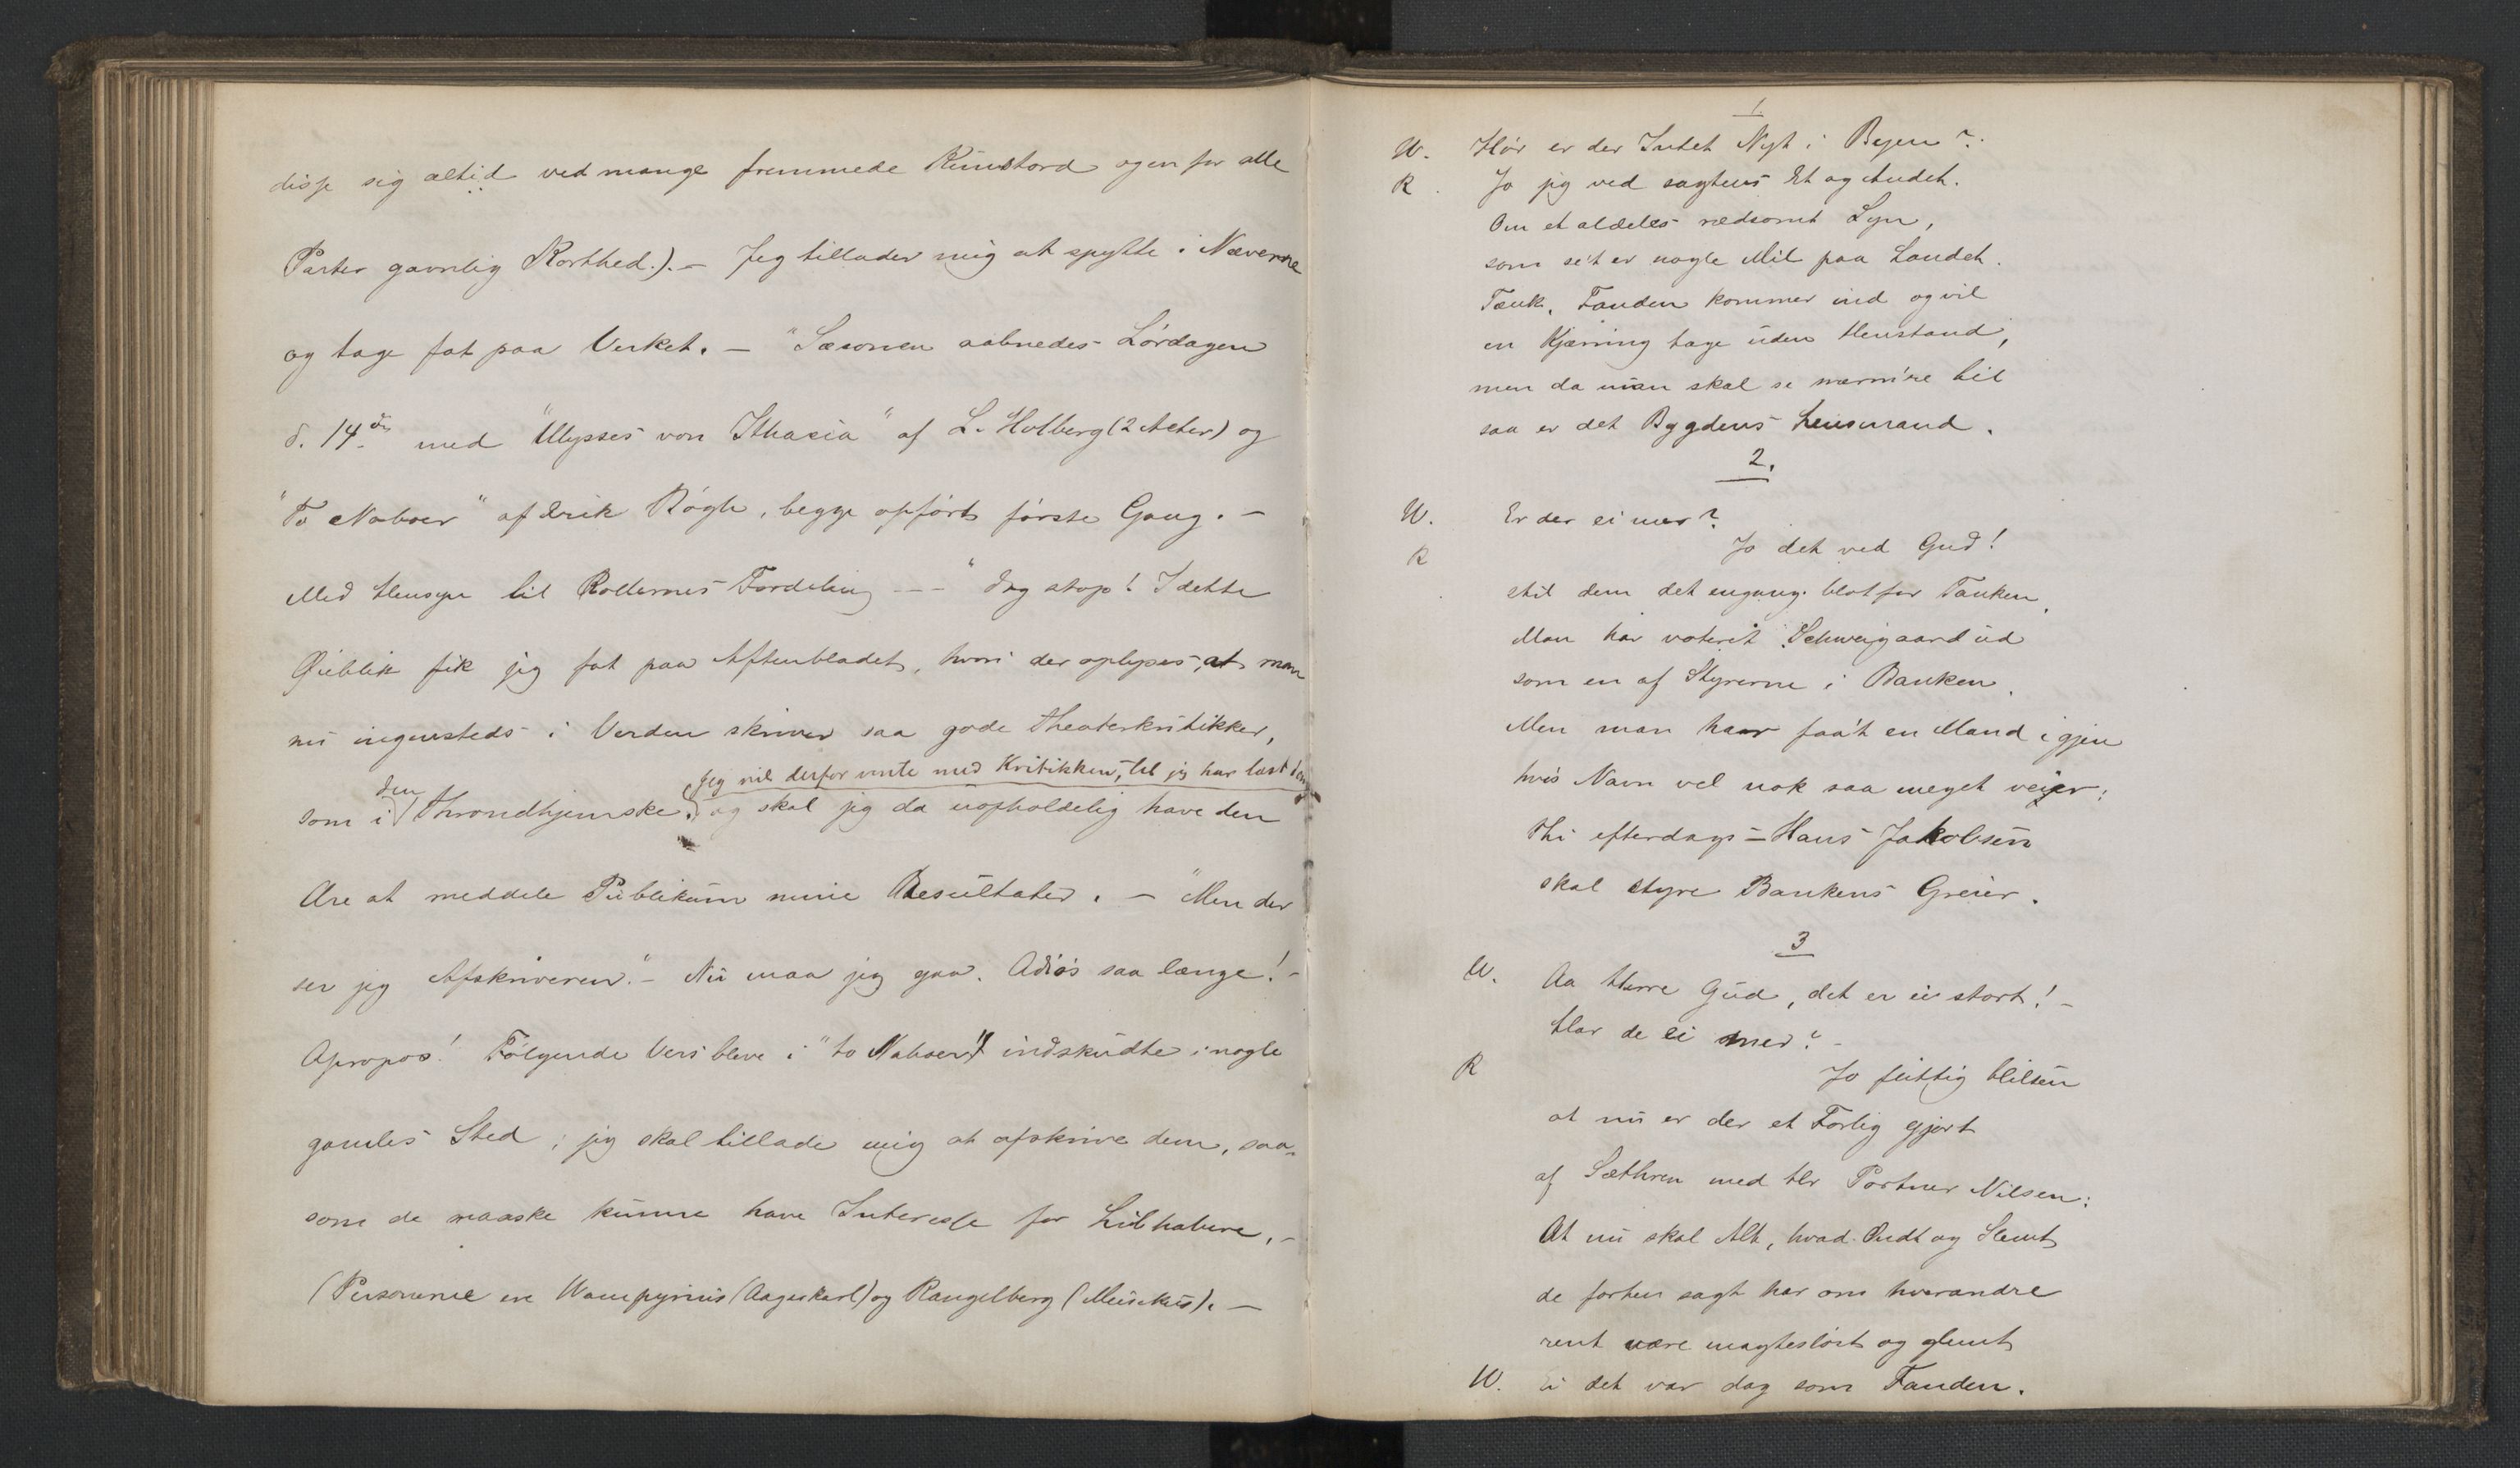 disse sig altid ved mange fremmede Kunstord og en for alle
Parter gavnlig Korthed.). – Jeg tillader mig at spytte i Næverne
og tage fat paa Verket. – "Sæsonen aabnedes Lørdagen
d. 14de med "Ulysses von Ithacia" af L. Holberg (2 Akter) og
"To Naboer" af Erik Bøgh, begge opførte første Gang. –
Med Hensyn til Rollernes Fordeling – – –" Dog stop! I dette
Øieblik fik jeg fat paa Aftenbladet, hvori der oplyses, at man
nu ingensteds i Verden skriver saa gode Theaterkritikker,
Jeg vil derfor vente med Kritikken, til jeg har læst den
som i den Throndhjemske. og skal jeg da uopholdelig have den
Ære at meddele Publikum mine Resultater. – "Men der
ser jeg Afskriveren." – Nu maa jeg gaa. Adiøs saa længe! –
Apropos! Følgende Vers bleve i "to Naboer" indskudte i nogle
gamles Sted; jeg skal tillade mig at afskrive dem, saa-
som de maaske kunne have Interesse for Liebhabere. –
(Personerne ere Wampyrius (Aagerkarl) og Rangelberg (Musikus). –
1.
W. Hør er der Intet Nyt i Byen?
R. Jo jeg ved sagtens Et og Andet.
Om et aldeles rædsomt Syn,
som se't er nogle Mil paa Landet.
Tænk, Fanden kommer ind og vil
en Kjærring tage uden Henstand,
men da man skal se nærm're til
saa er det Bygdens Lensmand.
2.
W. Er der ei mer?
R Jo det ved Gud!
stil dem det engang blot for Tanken,
Man har voteret Schweigaard ud
som en af Styrerne i Banken.
Men man har faa't en Mand igjen
hvis Navn vel nok saa meget veier;
thi efterdags – Hans Jakobsen
skal styre Bankens Greier.
3
W. Aa Herre Gud, det er ei stort! –
Har de ei mer? –
R Jo flittig hilsen
at nu er der et Forlig gjort
af Sæthren med Hr Portner Nilsen:
At nu skal Alt, hvad Ondt og Slemt
de forhen sagt har om hverandre
rent være magtesløst og glemt
W. Ei det var dog som Fanden.